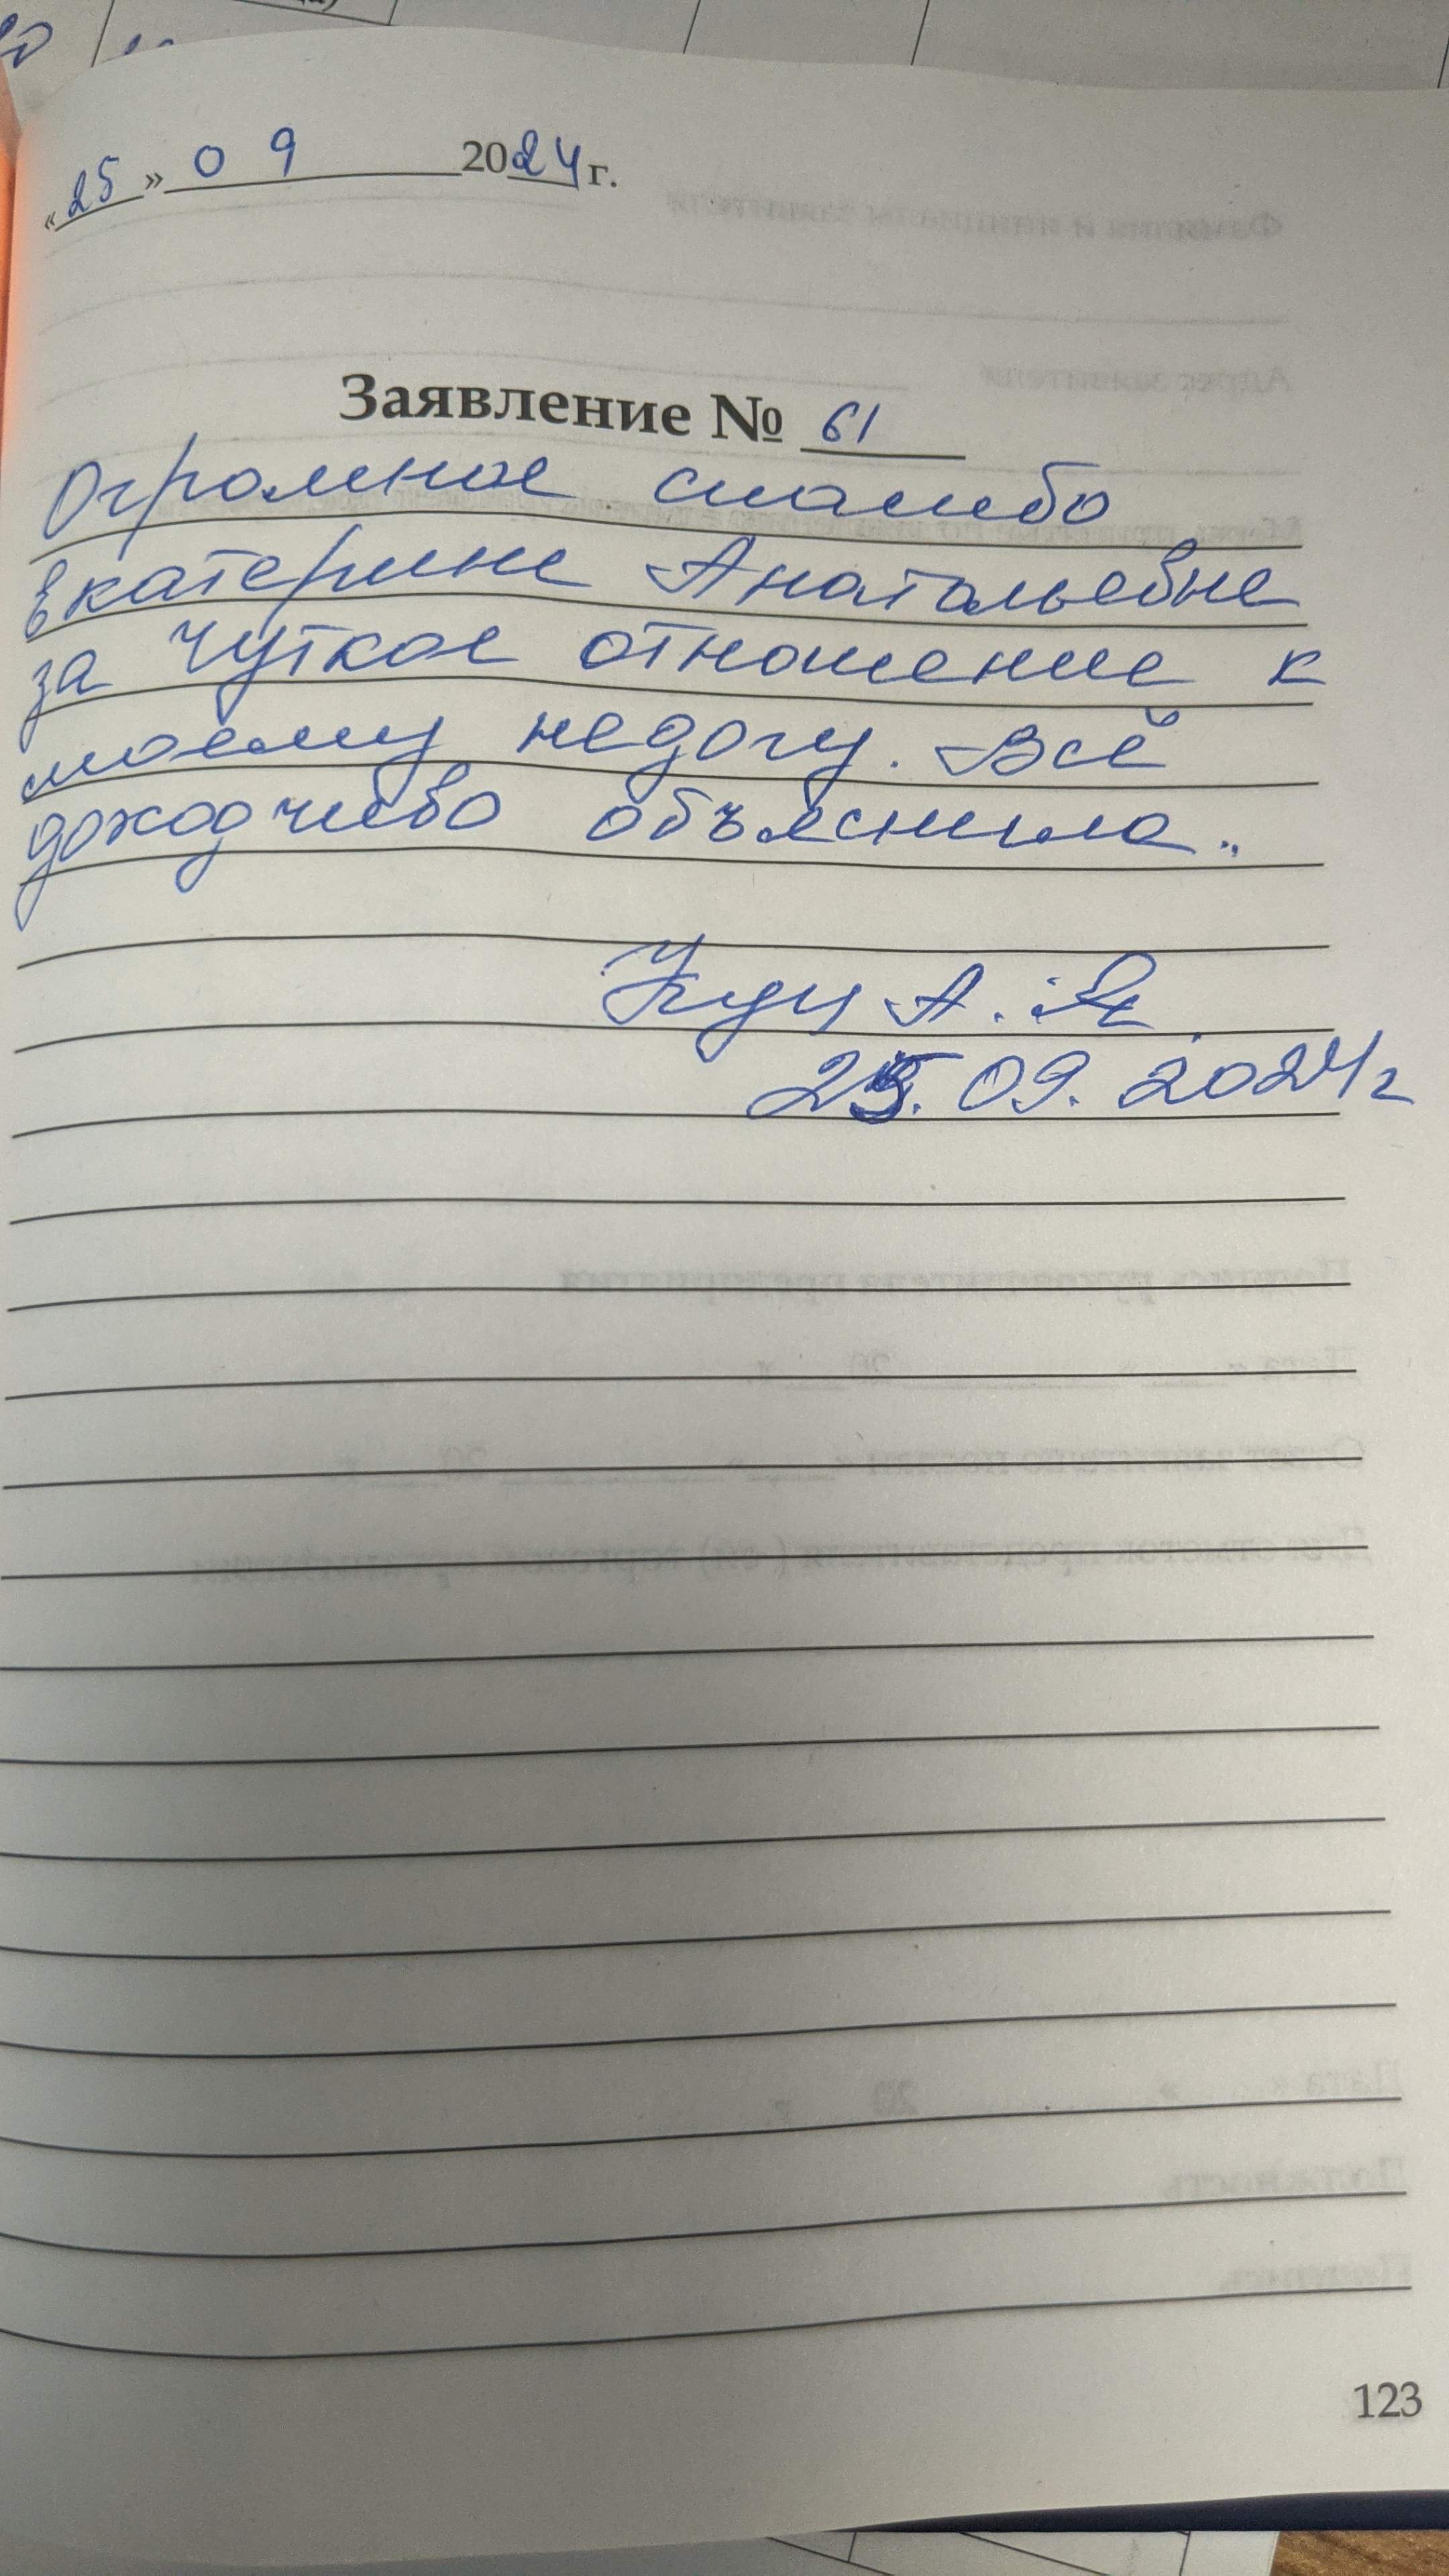 «25» 09 2024 г.
Заявление № 61
Огромное спасибо
Екатерине Анатольевне
за чуткое отношение к
моему недогу. Всё
доходчиво объяснила.
Куц А. Я.
25.09.2024г
123